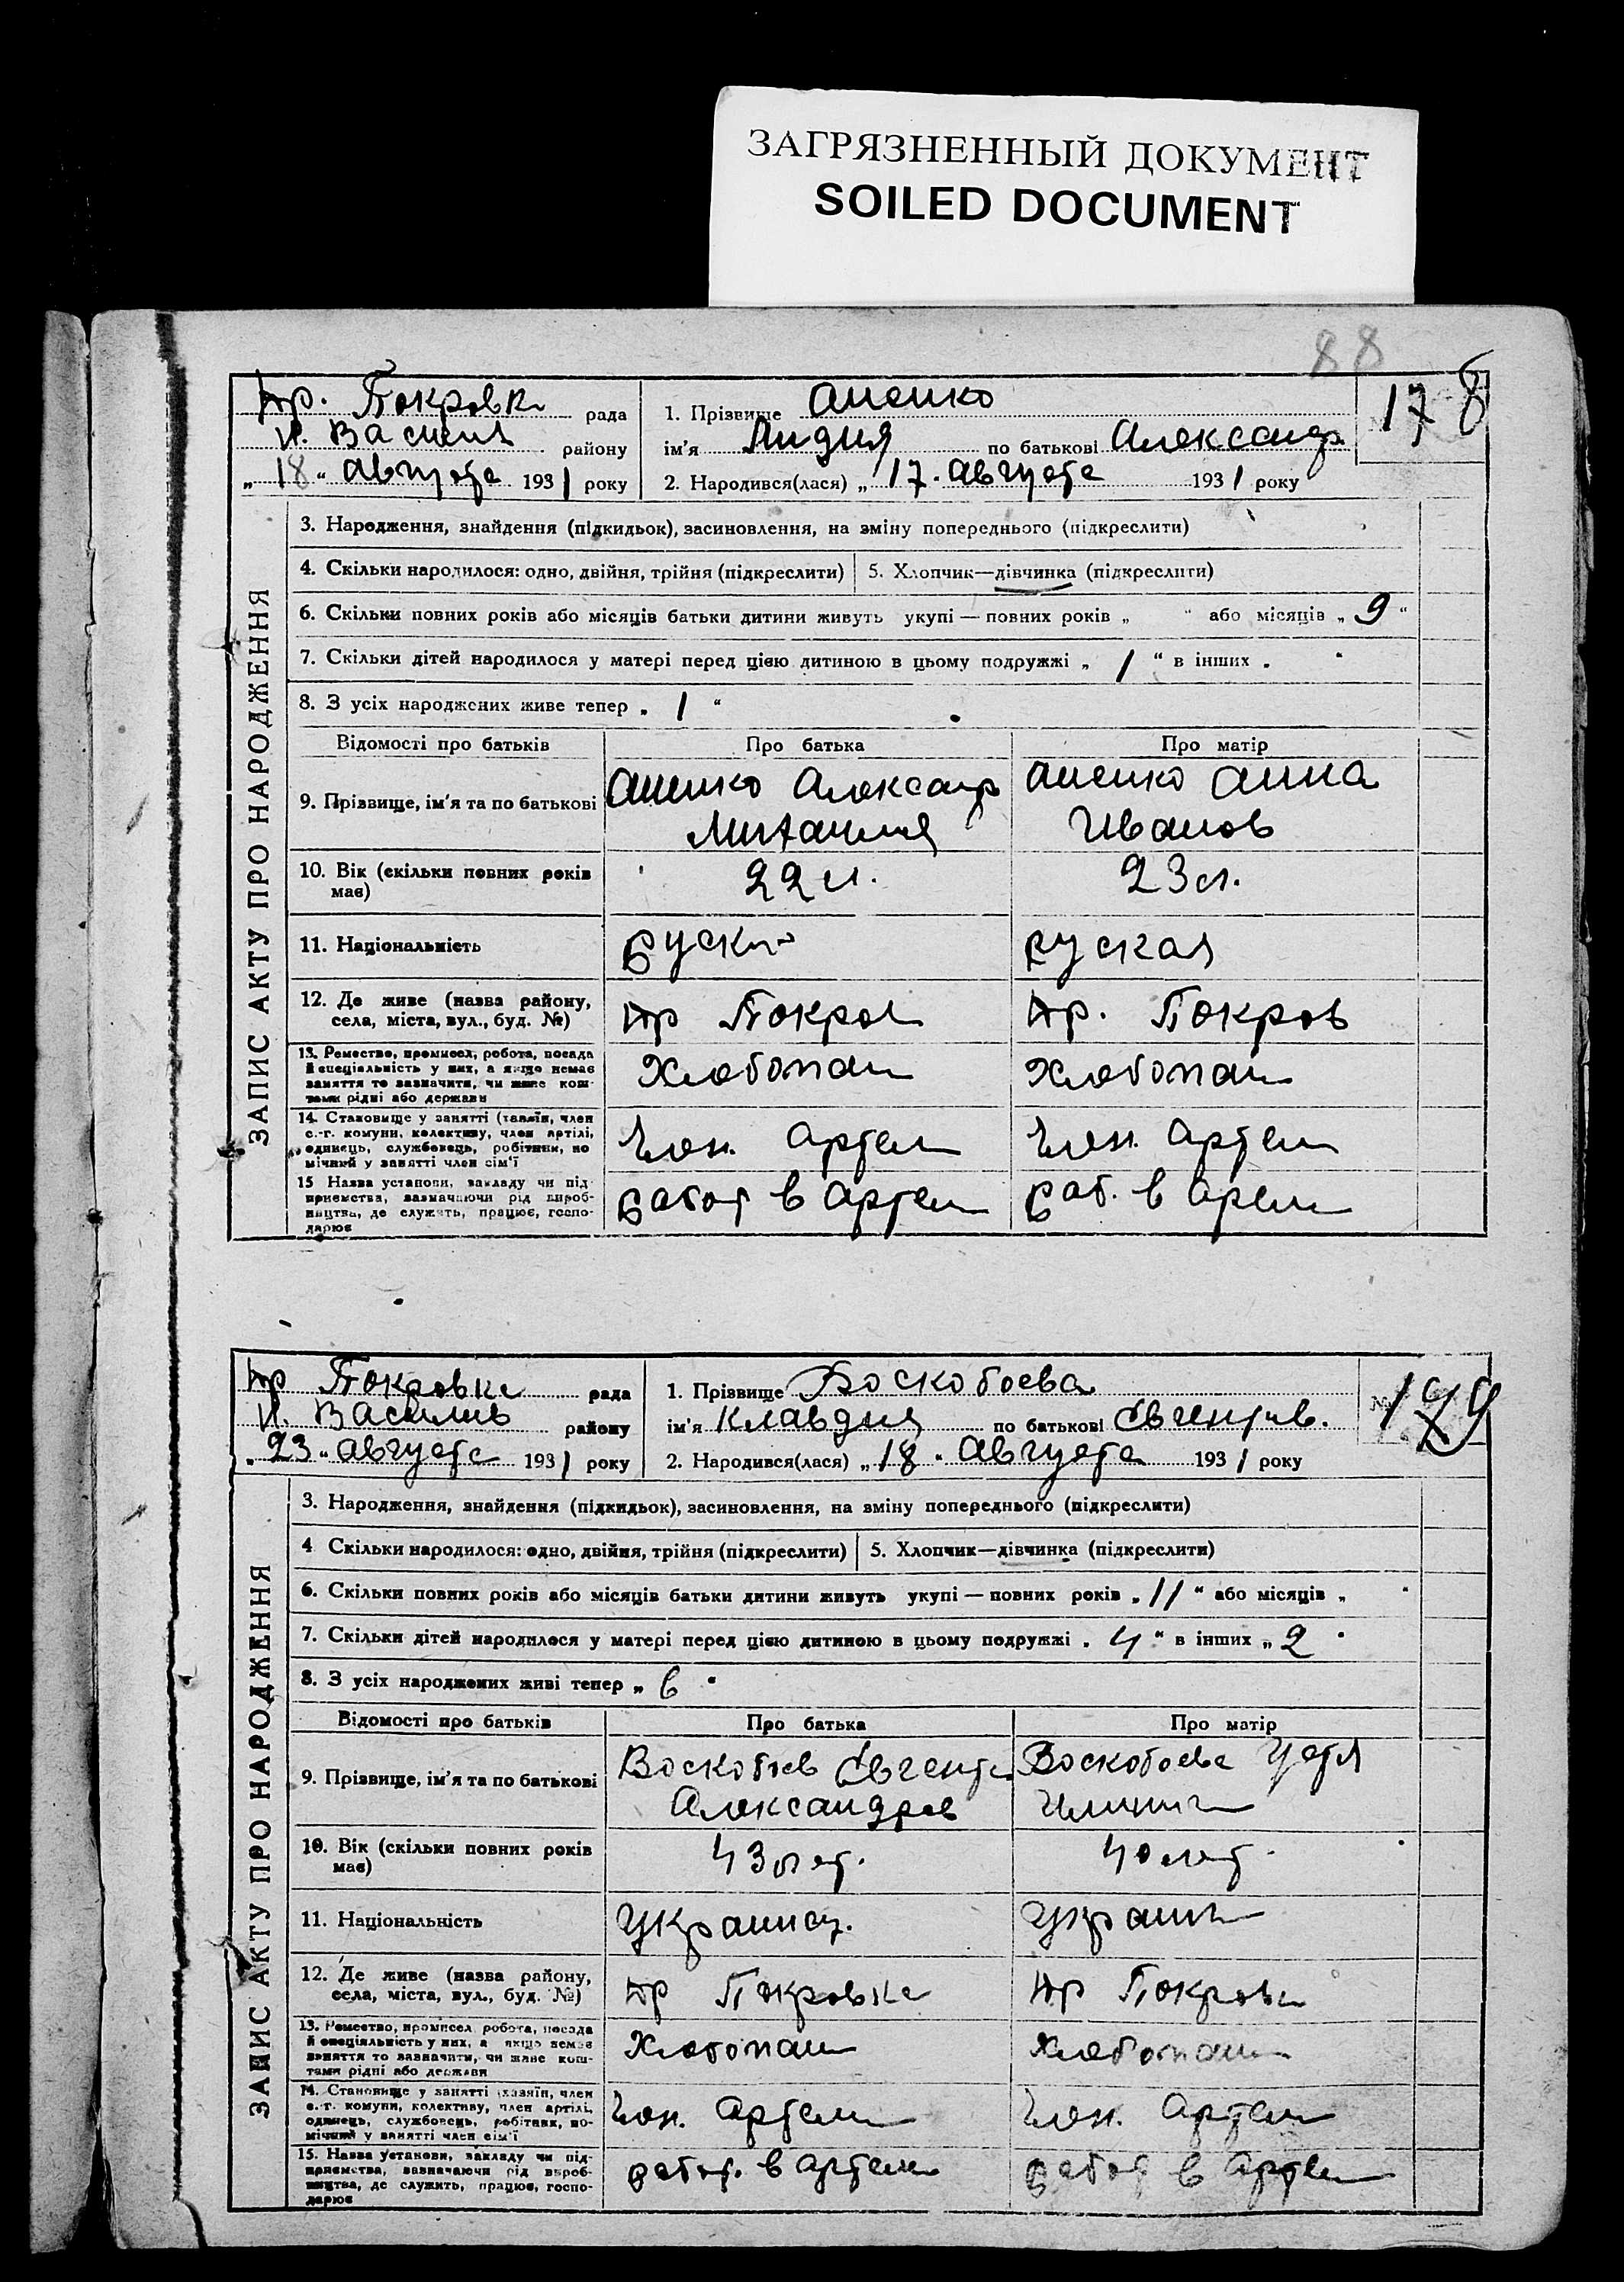 ЗАГРЯЗНЕННЫЙ ДОКУМЕНТ
SOILED DOCUMENT
88
Пр. Покровк рада
Н. Васил району
„18“ августа 1931 року
1. Прізвище
ім'я Лидия по батькові Александр.
2. Народився(лася) „17. августа 1931 року
178
ЗАПИС АКТУ ПРО НАРОДЖЕННЯ
3. Народження, знайдення (підкидьок), засиновлення, на зміну попереднього (підкреслити)
4. Скільки народилося: одно, двійня, трійня (підкреслити) 5. Хлопчик—дівчинка (підкреслити)
6. Скільки повних років або місяців батьки дитини живуть укупі — повних років „ “ або місяців „ 9 “
7. Скільки дітей народилося у матері перед цією дитиною в цьому подружжі „ 1 “ в інших
8. З усіх народжених живе тепер „ 1 “
Відомості про батьків Про батька Про матір
9. Прізвище, ім'я та по батькові
Александр
Анна
Иванов
10. Вік (скільки повних років має) 22 л. 23 л.
11. Національність руски руская
12. Де живе (назва району, села, міста, вул., буд. №) Пр Покров Пр. Покров
13. Ремество, промисел, робота, посада й спеціяльність у них, а якщо немає заняття то зазначити, чи живе коштами рідні або держави Хлебопаш Хлебопаш
14. Становище у занятті (хазяїн, член с.-г. комуни, колективу, член артілі, одинець, службовець, робітник, помічний у занятті член сім'ї Член. Артели Член. Артели
15. Назва установи, закладу чи підприємства, зазначаючи рід виробництва, де служить, працює, господарює Работ в Артели Раб. в Арели
Пр Покровка рада
Н. Василив району
„23“ августа 1931 року
1. Прізвище Воскобоева
ім'я Клавдия по батькові Евгентив.
2. Народився(лася) „18“ Августа 1931 року
№ 179
ЗАПИС АКТУ ПРО НАРОДЖЕННЯ
3. Народження, знайдення (підкидьок), засиновлення, на зміну попереднього (підкреслити)
4 Скільки народилося: одно, двійня, трійня (підкреслити) 5. Хлопчик—дівчинка (підкреслити)
6. Скільки повних років або місяців батьки дитини живуть укупі — повних років „ 11 “ або місяців „
7. Скільки дітей народилося у матері перед цією дитиною в цьому подружжі „ 4 “ в інших „ 2
8. З усіх народжених живі тепер „ 6 “
Відомості про батьків Про батька Про матір
9. Прізвище, ім'я та по батькові
Воскобоев Евгенти Воскобоева
Александров
10. Вік (скільки повних років має) 43 лет. 40 лет.
11. Національність Украинец. Украин
12. Де живе (назва району, села, міста, вул., буд. №) Пр Покровка Пр Покровк
13. Ремество, промисел, робота, посада й спеціяльність у них, а якщо немає заняття то зазначити, чи живе коштами рідні або держави Хлебопаш Хлебопаш
14. Становище у занятті (хазяїн, член с.-г. комуни, колективу, член артілі, одинець, службовець, робітник, помічний у занятті член сім'ї Член. Артели Член. Артели
15. Назва установи, закладу чи підприємства, зазначаючи рід виробництва, де служить, працює, господарює работ. в артели работ в Артели